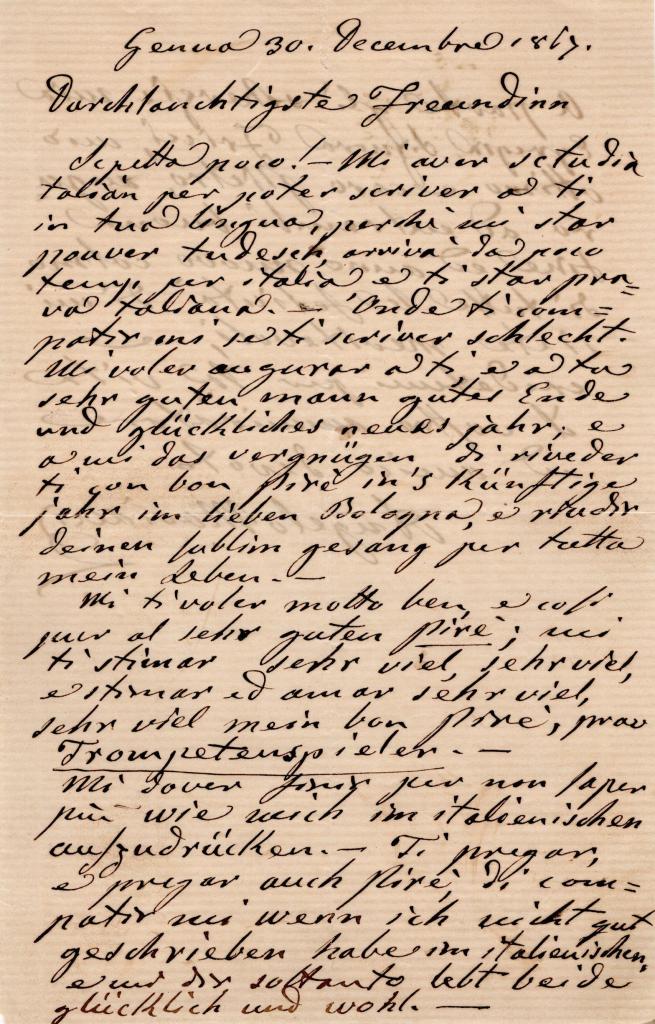 Genua 30. Decembre 1867.
Durchlauchtigste Freundinn
Aspetta poco! – Mi aver studia
talian per poter scriver a ti
in tua lingua, perchè mi star
pouver tudesch, arrivà da poco
temp, per italia e ti star pro=
va taliana. – Onde ti com=
patir mi se ti scriver schlecht.
Mi voler augurar a ti, e a tu
sehr guten mann gutes Ende
und glückliches neues jahr; e
a mi das vergnügen di riveder
ti con bon Piré in's Künftige
jahr im lieben Bologna, e riudir
deinen sublim gesang per tutta
mein Leben. –
Mi ti voler molto ben, e così
pur al sehr guten Piré; mi
ti stimar sehr viel, sehr viel,
e stimar ed amar sehr viel,
sehr viel mein bon Piré, prav
Trompetenspieler. –
Mi dover finir per non saper
più wie mich im italienischen
auszudrücken. – Ti pregar,
e pregar auch Piré, di com=
patir mi wenn ich nicht gut
geschrieben habe im italienischen,
e mi dir soltanto lebt beide
glücklich und wohl. –